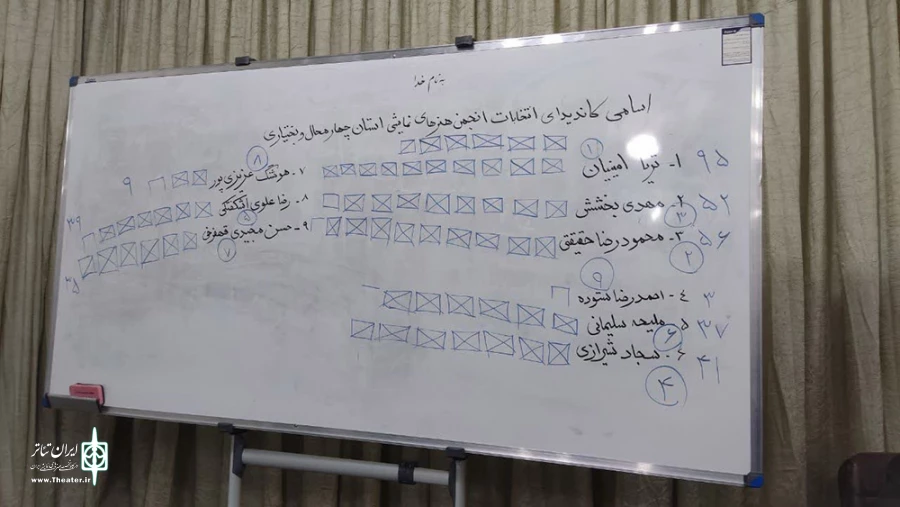 به نام خدا
اسامی کاندیدای انتخابات انجمن هنرهای نمایشی استان چهارمحال و بختیاری
۱- ثریا امینیان ۹۵ ۱
۲- مهدی بخشش ۵۲ ۳
۳- محمودرضا حقیقی ۵۶ ۲
۴- احمدرضا ستوده ۳ ۹
۵ ملیحه سلیمانی ۳۷ ۶
۶- سجاد شیرازی ۴۱ ۴
۷- هوشنگ عزیزی پور ۹ ۸
۸- رضا علوی اشکفتکی ۳۹ ۵
۹- حسن مجیدی قهفرخی ۳۵ ۷
ایران تئاتر
www.Theater.ir